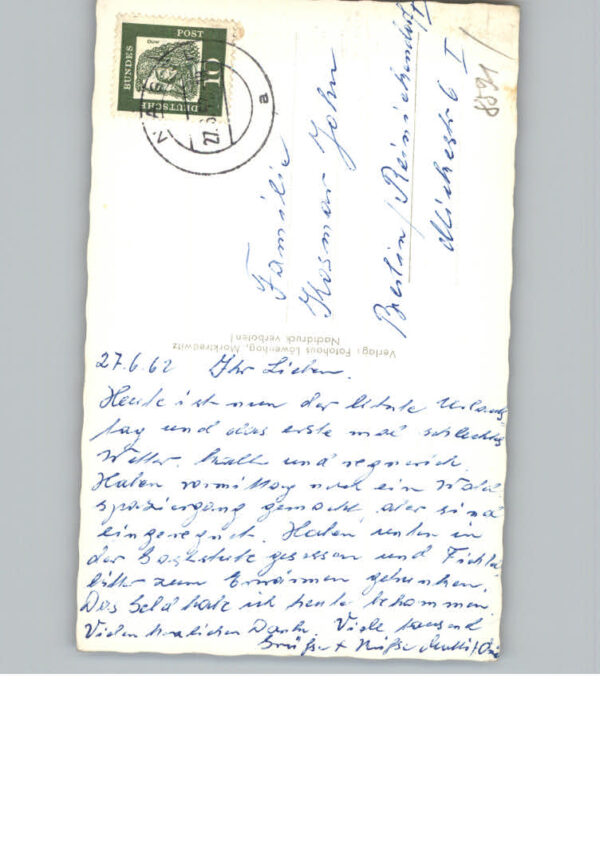 Dürer
BUNDES POST
DEUTSCHE
10
27.6.
a
8591
Familie
Kosmar John
Berlin/Reinickendorf
6 I
Verlag: Fotohaus Löwenhag, Marktredwitz
Nachdruck verboten!
27.6.62 Ihr Lieben.
Heute ist nun der letzte Urlaubs
tag und das erste mal schlechtes
Wetter. kalt und regnerisch.
Haben vormittag noch ein Wald
spaziergang gemacht, aber sind
eingeregnet. Haben unten in
der Gaststube gesessen und Fichtel
bitter zum Erwärmen getrunken.
Das Geld habe ich heute bekommen.
Vielen herzlichen Dank. Viele tausend
Grüße + Küße Mutti/Omi